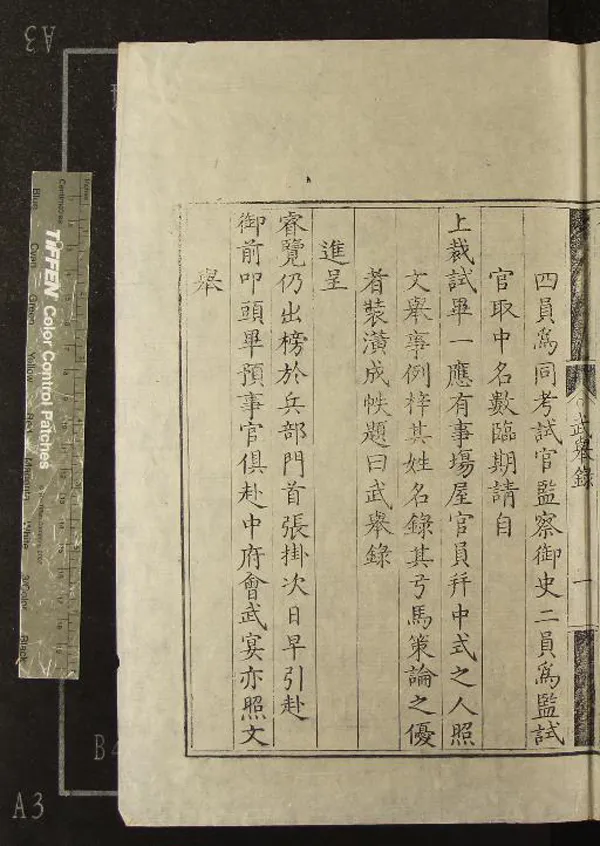 四員爲同考試官監察御史二員爲監試
官取中名數臨期請自
上裁試畢一應有事場屋官員幷中式之人照
文舉事例梓其姓名錄其弓馬策論之優
者裝潢成帙題曰武舉錄
進呈
睿覽仍出榜於兵部門首張掛次日早引赴
御前叩頭畢預事官俱赴中府會武宴亦照文
舉
武舉錄
一
TIFFEN Color Control Patches
Centimetres
Blue
Cyan
Green
Yellow
Red
Magenta
White
3/Color
Black
A3
A3